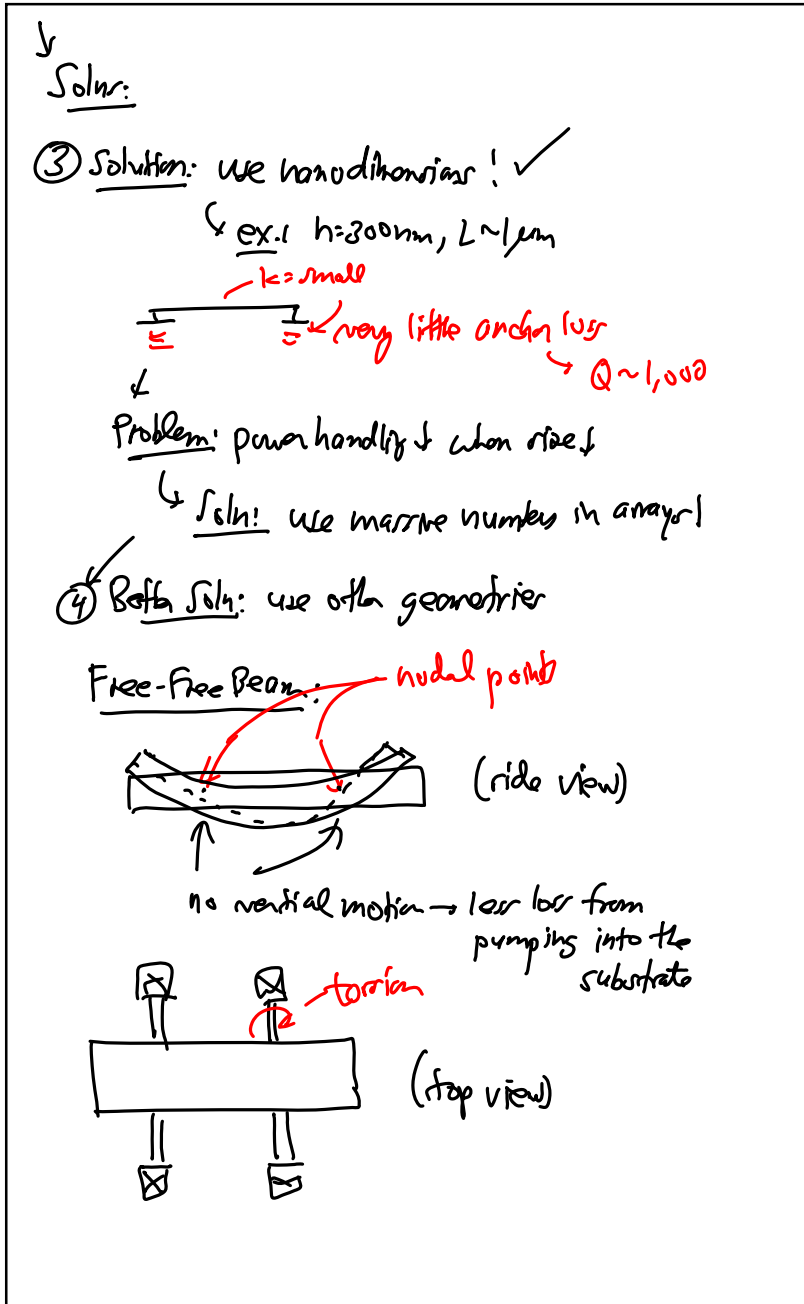 Solns:
③ Solution: use nanodimensions! ✓
ex.: h=300nm, L~1μm
k=small
very little anchor loss
Q~1,000
Problem: power handling ↓ when size ↓
Soln: use massive numbers in arrays!
④ Better Soln: use other geometries
Free-Free Beam:
nodal points
(side view)
no vertical motion → less loss from
pumping into the
substrate
torsion
(top view)